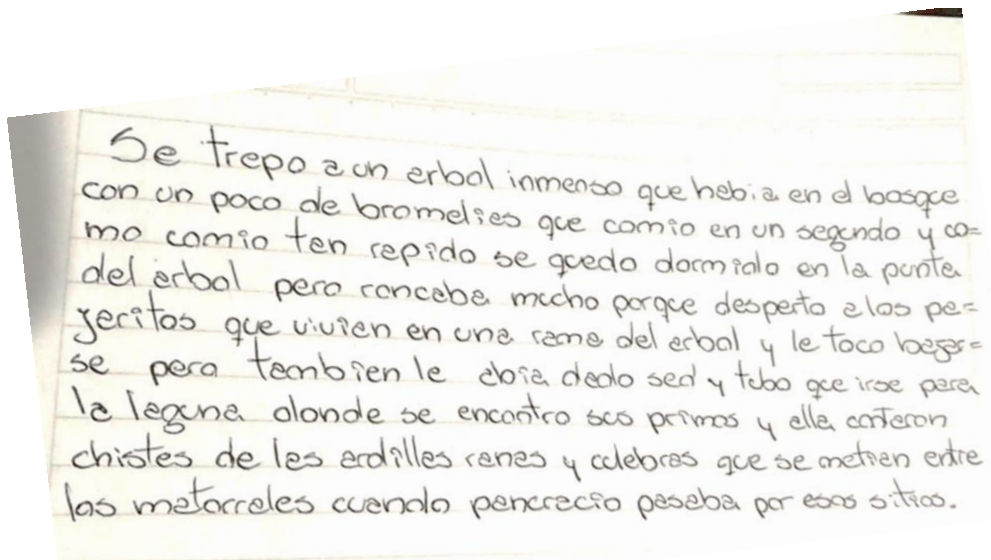 Se trepo a un arbol inmenso que habia en el bosque
con un poco de bromelias que comio en un segundo y co=
mo comio tan rapido se quedo dormido en la punta
del arbol pero roncaba mucho porque desperto a los pa=
jaritos que vivian en una rama del arbol y le toco bajar=
se pero tambien le abia dado sed y tubo que irse para
la laguna donde se encontro sus primos y alla contaron
chistes de las ardillas ranas y culebras que se metian entre
los matorrales cuando pancracio pasaba por esos sitios.